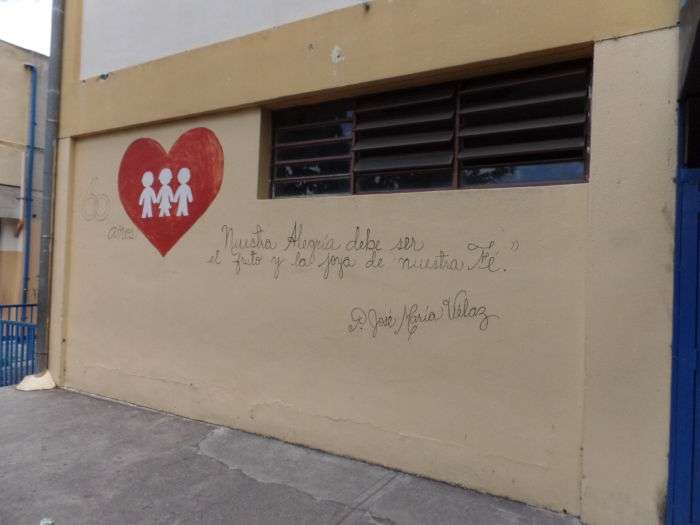 60
años.
Nuestra Alegría debe ser
el fruto y la joya de nuestra Fé."
P. José María Vélaz